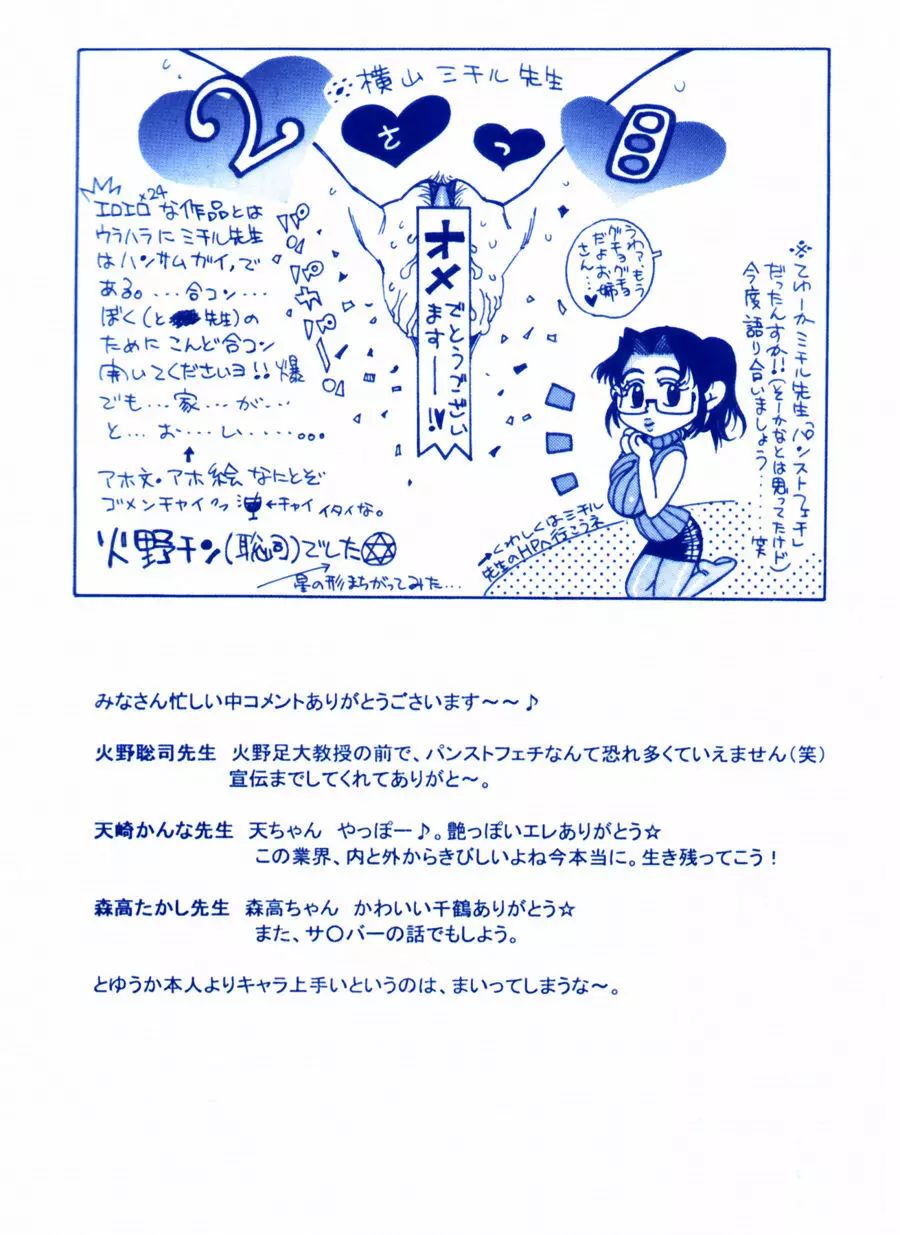 横山ミチル先生
2さつ目
エロエロ×24な作品とは
ウラハラにミチル先生
はハンサムガイ、で
ある。...合コン...
ぼく(と 先生)の
ためにこんど合コン
開いてくださいヨ!!爆
でも...家...が...
と...お...し......。。。
↑
アホ文・アホ絵 なにとぞ
ゴメンチャイ ←チャイ イタイな。
火野チン(聡司)でした✡
星の形まちがってみた...
パパパパーン。
オメ
でとうござい
ます——!!
うわ、もう
グチョグチョ
だよお姉
さん...♥
※てゆーかミチル先生「パンストフェチ」
だったんすか!!(そーかなとは思ってたけど)
今度語り合いましょう......笑
→くわしくはミチル
先生のHPへ行こうネ
みなさん忙しい中コメントありがとうごさいます～～♪
火野聡司先生 火野足大教授の前で、パンストフェチなんて恐れ多くていえません(笑)
宣伝までしてくれてありがと～。
天崎かんな先生 天ちゃん やっぽー♪。艶っぽいエレありがとう☆
この業界、内と外からきびしいよね今本当に。生き残ってこう!
森高たかし先生 森高ちゃん かわいい千鶴ありがとう☆
また、サ〇バーの話でもしよう。
とゆうか本人よりキャラ上手いというのは、まいってしまうな～。